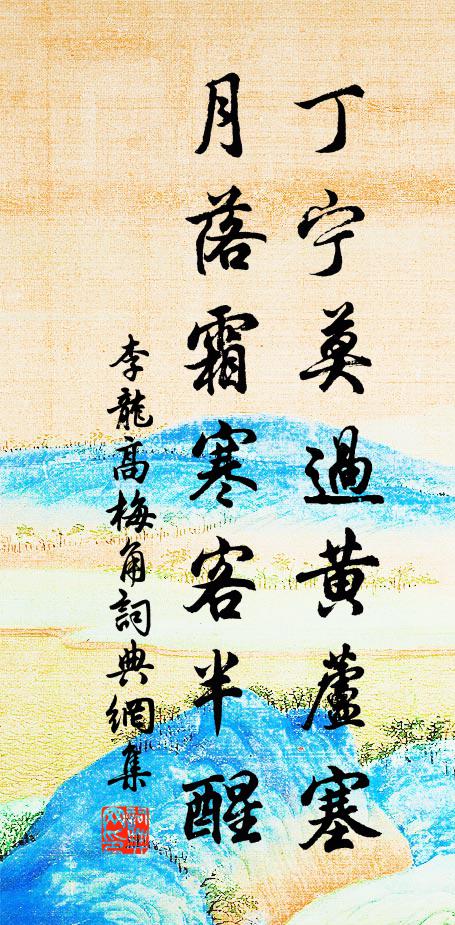 丁宁莫過黄蘆塞
月落霜寒客半醒
李龍高梅角詞典網集